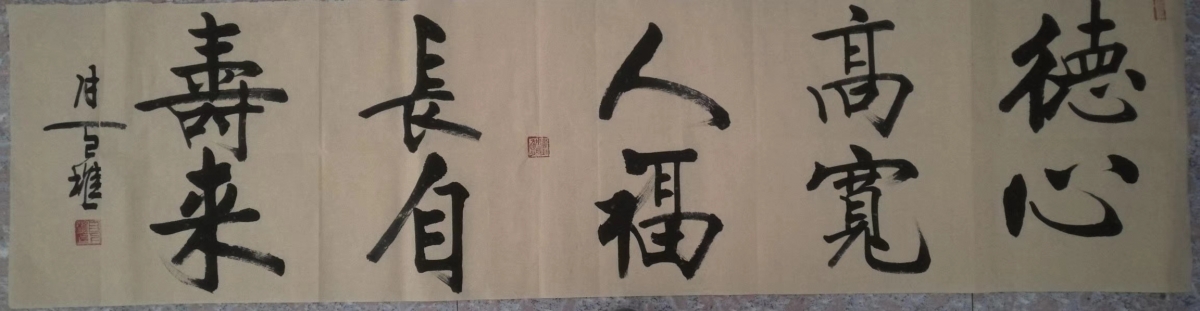 德心
高寬
人福
長自
壽来